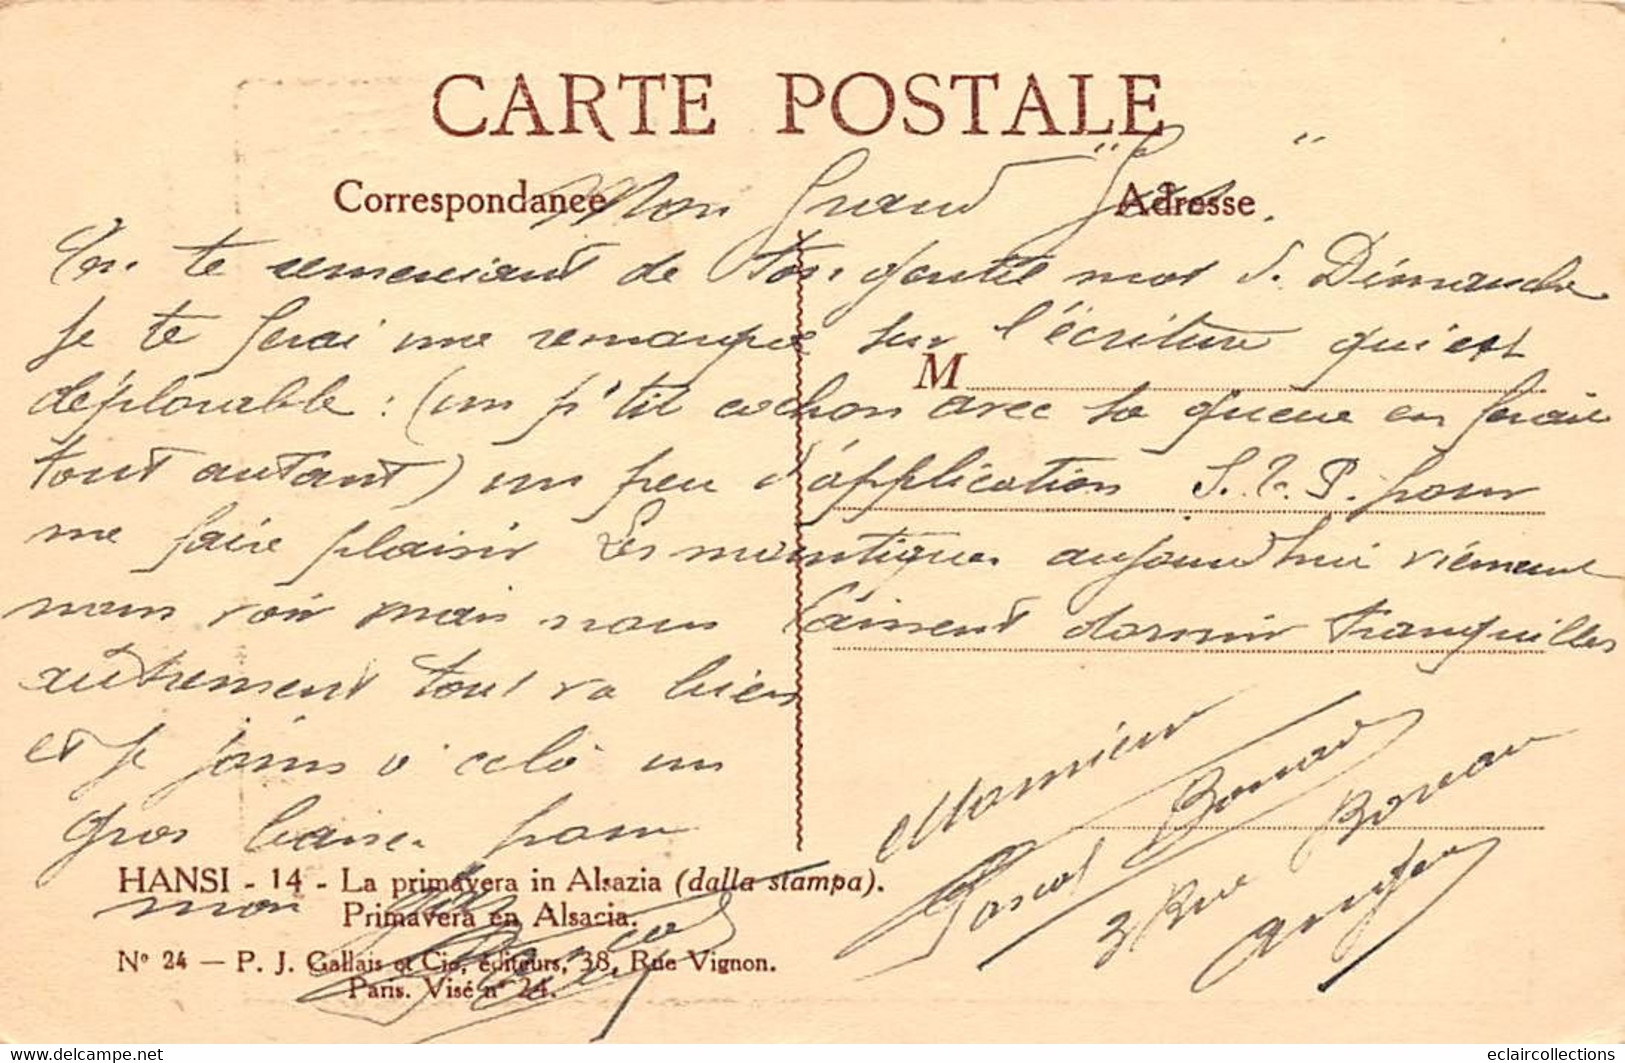 CARTE POSTALE
Correspondance
Adresse
Mon Grand " "
En te remerciant de ton gentil mot d. Dimanche
je te ferai une remarque sur l'écriture qui est
M
déplorable : (un p'tit cochon avec sa queue en ferait
tout autant) un peu d'application S.T.P. pour
me faire plaisir Les moustiques aujourd'hui viennent
nous voir mais nous laissent dormir tranquilles
autrement tout va bien
et je joins à celà un
gros baiser pour
mon
Monsieur
Pascal
3 Rue Boreau
Angers
HANSI - 14 - La primavera in Alsazia (dalla stampa).
Primavera en Alsacia.
N° 24 — P. J. Gallais et Cie, éditeurs, 38, Rue Vignon.
Paris. Visé n° 24.
delcampe.net
eclaircollections